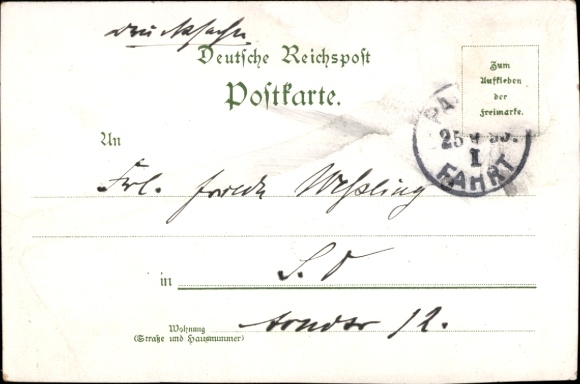 Drucksache
Deutsche Reichspost
Postkarte.
Zum
Aufkleben
der
Freimarke.
PA
25
I
FAHRT
An
Frl. Frieda Weßling
in S. O
Wohnung
(Straße und Hausnummer)
12.